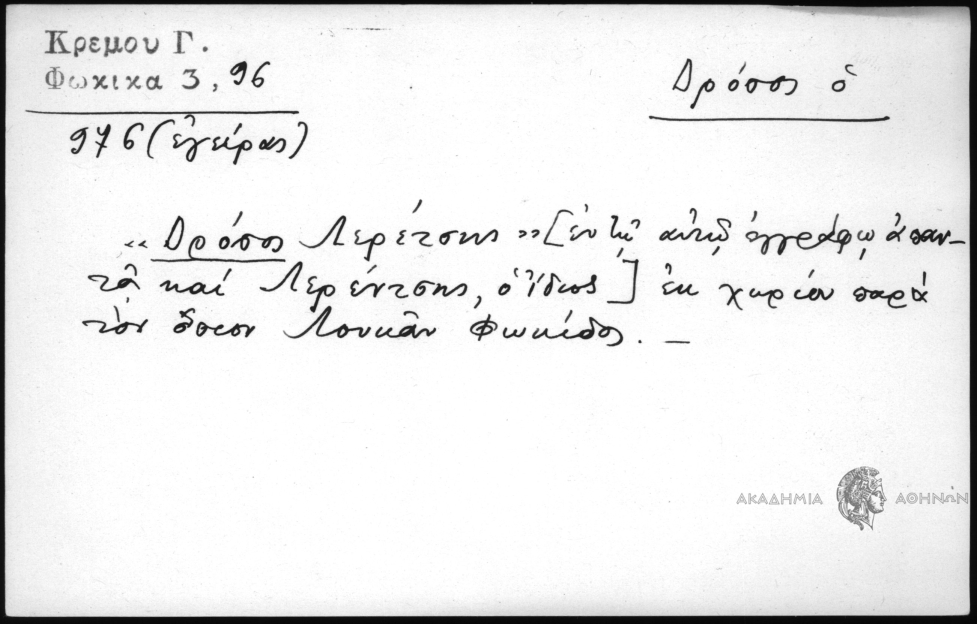 Κρεμου Γ.
Φωκικα 3, 96
Δρόσος ὁ
976 (ἐγείρας)
«Δρόσος Λερέτσης» [ἐν τῷ αὐτῷ ἐγγράφῳ ἀπαν-
τᾶ καί Λερέντσης, ὁ ἴδιος] ἐκ χωρίου παρὰ
τὸν ὅσιον Λουκᾶν Φωκίδος. —
ΑΚΑΔΗΜΙΑ ΑΘΗΝΩΝ